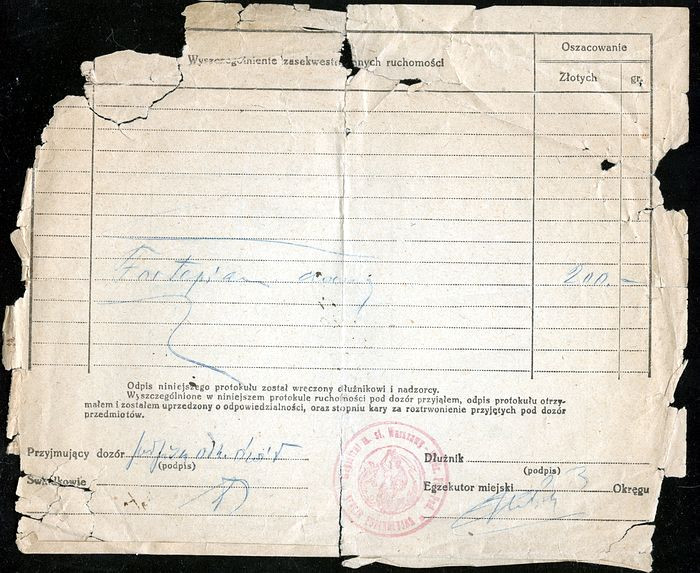 Wyszczególnienie zasekwestrowanych ruchomości
Oszacowanie
Złotych gr.
Fortepian 200.–
Odpis niniejszego protokułu został wręczony dłużnikowi i nadzorcy.
Wyszczególnione w niniejszem protokule ruchomości pod dozór przyjąłem, odpis protokułu otrzy-
małem i zostałem uprzedzony o odpowiedzialności, oraz stopniu kary za roztrwonienie przyjętych pod dozór
przedmiotów.
Przyjmujący dozór
(podpis)
Świadkowie
m. st. Warszawy
Dłużnik
(podpis)
Egzekutor miejski 23 Okręgu